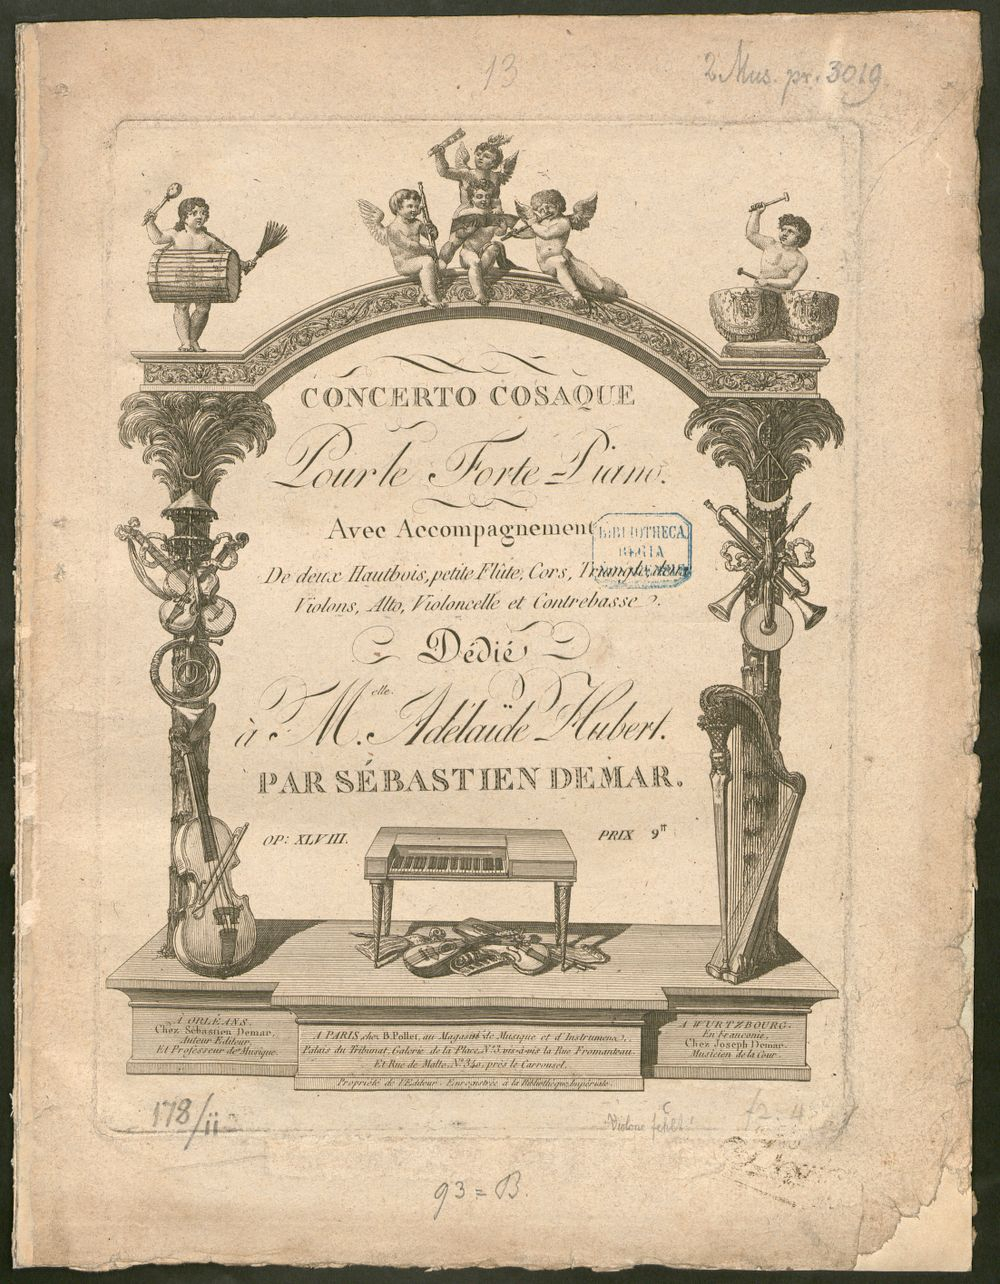 13
2 Mus. pr. 3019.
CONCERTO COSAQUE
Pour le Forte-Piano.
Avec Accompagnement
BIBLIOTHECA
REGIA
De deux Hautbois, petite Flûte, Cors, Triangle, deux
Violons, Alto, Violoncelle et Contrebasse.
Dédié
à M.elle Adélaïde Hubert.
PAR SÉBASTIEN DEMAR.
OP: XLVIII.
PRIX 9tt
A ORLÉANS.
Chez Sébastien Demar.
Auteur Editeur.
Et Professeur de Musique.
A PARIS, chez B. Pollet, au Magasin de Musique et d'Instrumens,
Palais du Tribunat, Galerie de la Place, No. 3. vis-à-vis la Rue Fromanteau.
Et Rue de Malte, No. 340. près le Carrousel.
Propriété de l'Editeur. Enregistrée à la Bibliothèque Impériale.
A WURTZBOURG.
En Franconie,
Chez Joseph Demar.
Musicien de la Cour.
178/ii
Violone fehlt!
f2. 4
93 = B.